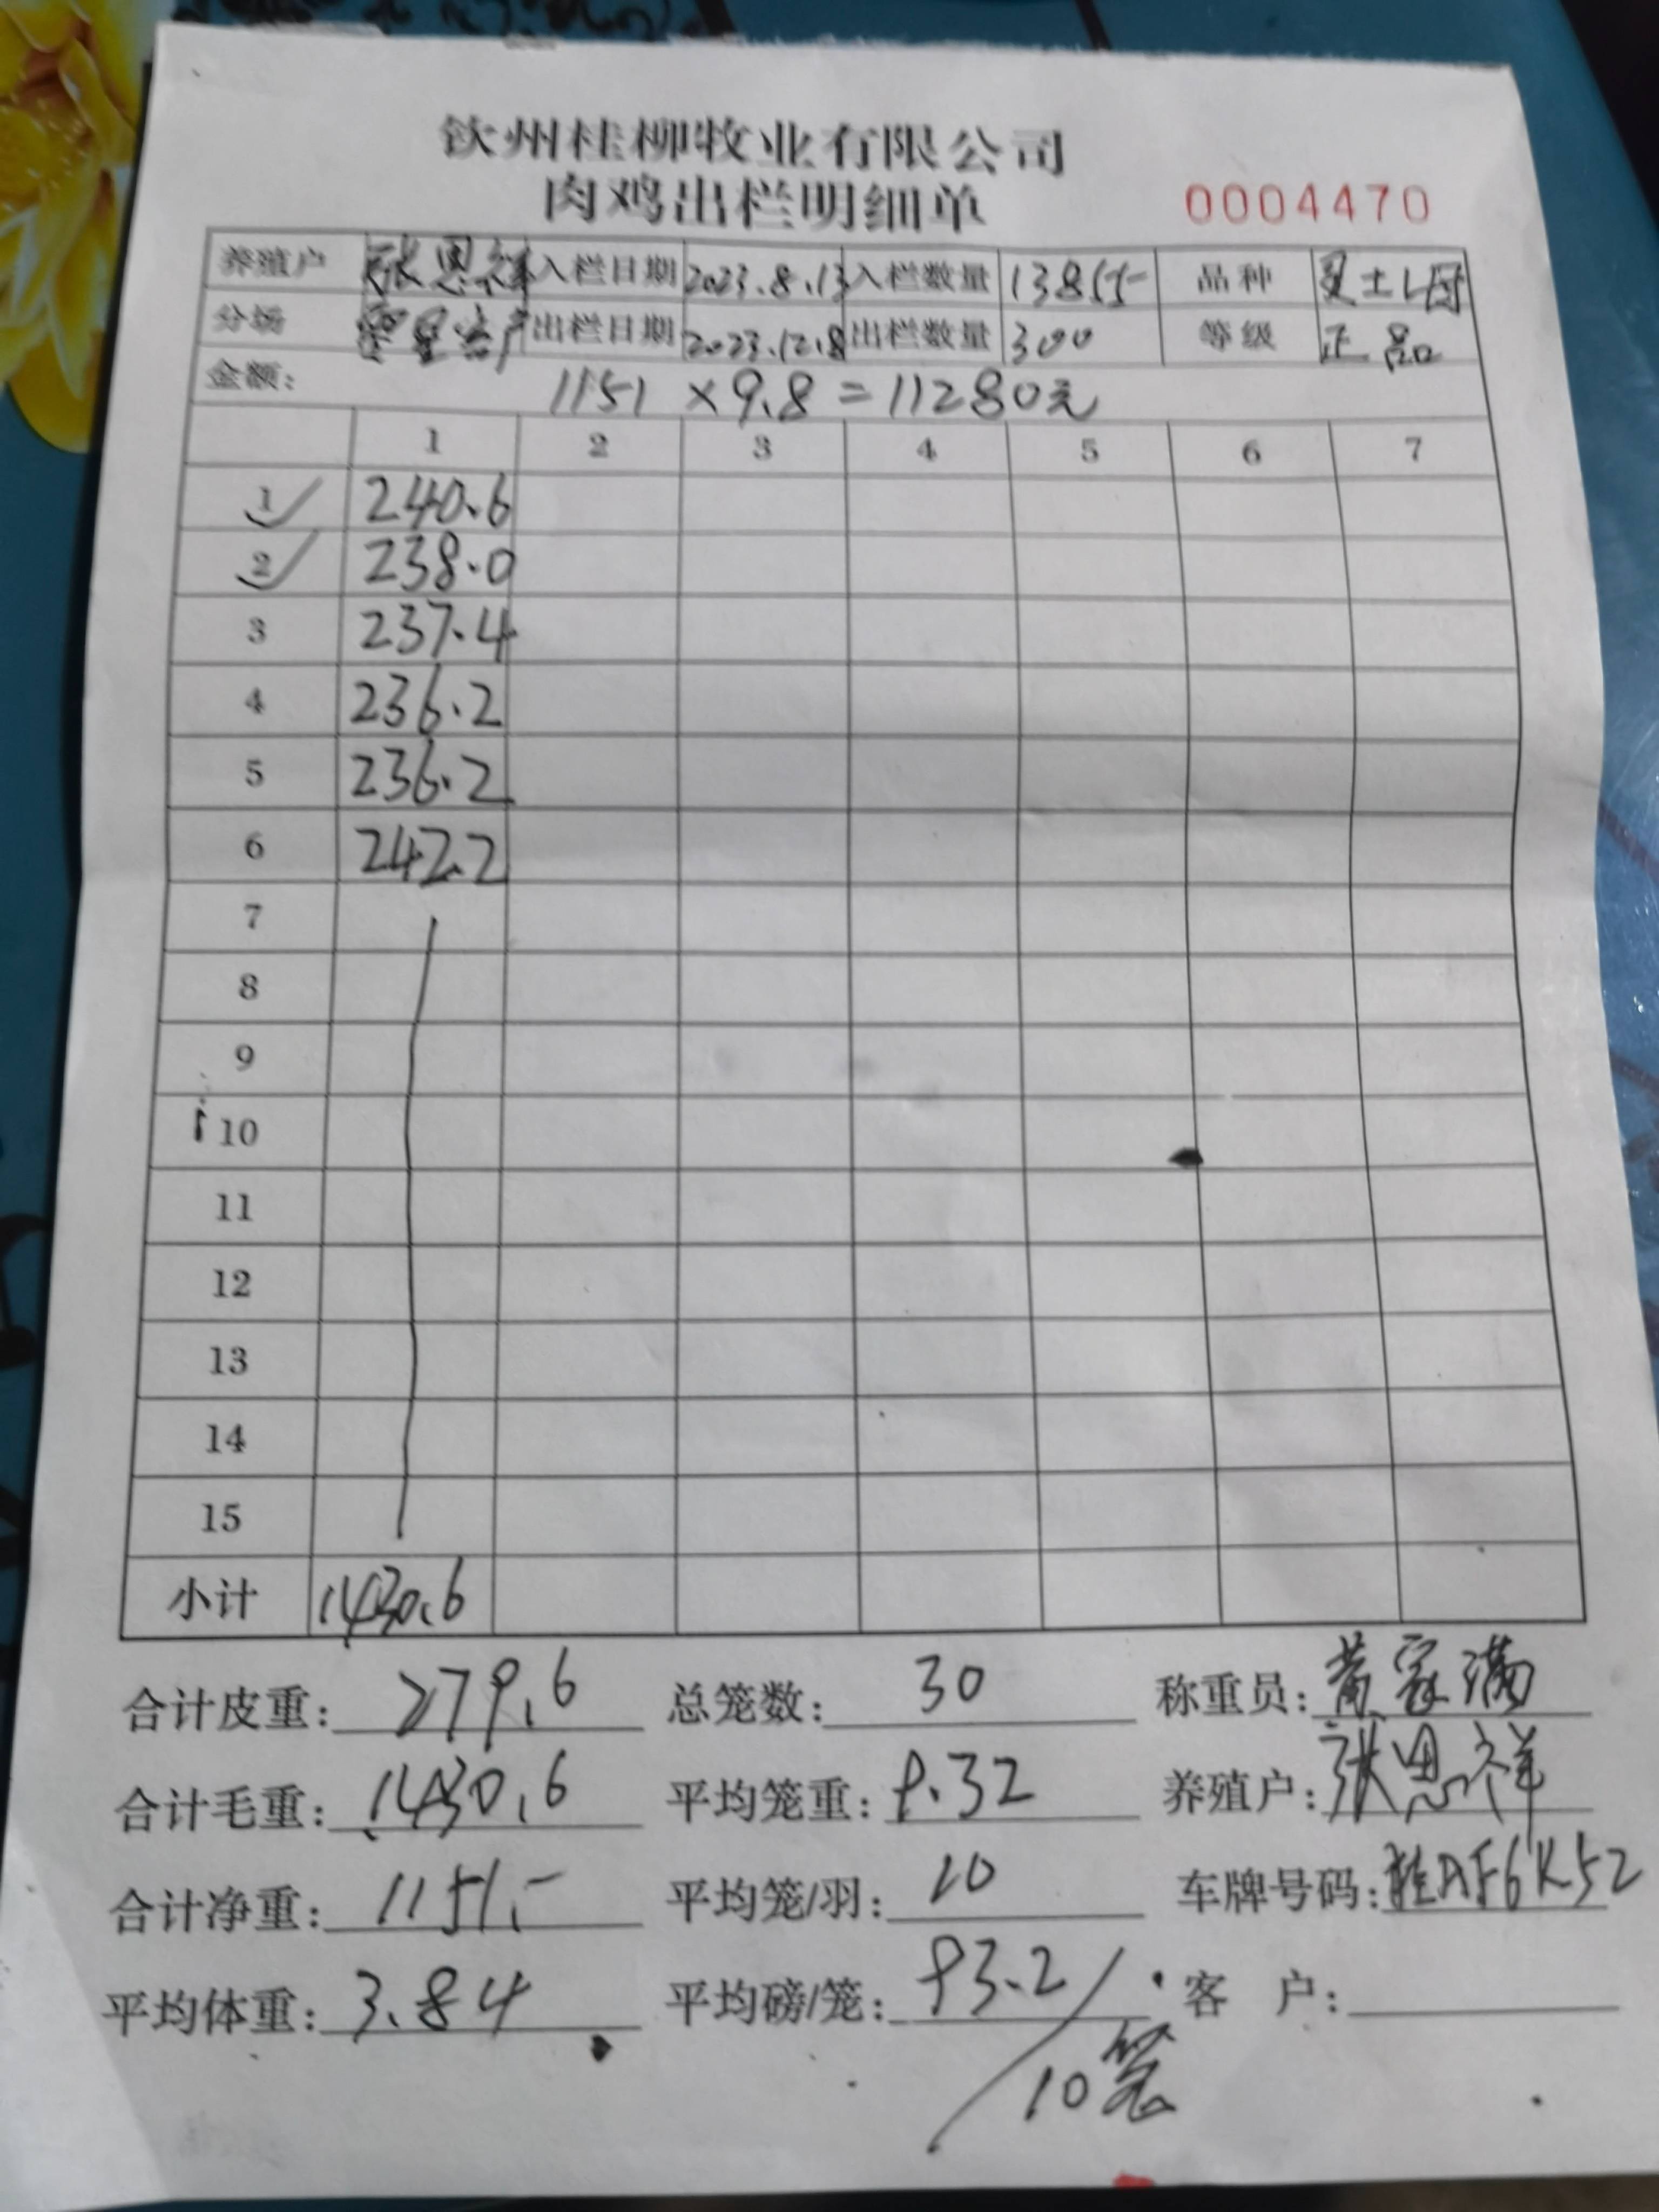 钦州桂柳牧业有限公司
肉鸡出栏明细单 0004470
养殖户 张思祥 入栏日期 2023.8.13 入栏数量 13855 品种 土
分场 出栏日期 2023.12.8 出栏数量 300 等级 正品
金额: 1151 ×9.8=11280元
1 2 3 4 5 6 7
1 240.6
2 238.0
3 237.4
4 236.2
5 236.2
6 242.2
7
8
9
10
11
12
13
14
15
小计 1430.6
合计皮重: 279.6 总笼数: 30 称重员: 黄家满
合计毛重: 1430.6 平均笼重: 9.32 养殖户: 张思祥
合计净重: 1151.- 平均笼/羽: 10 车牌号码: 桂AF6K52
平均体重: 3.84 平均磅/笼: 93.2/ 客户:
10笼